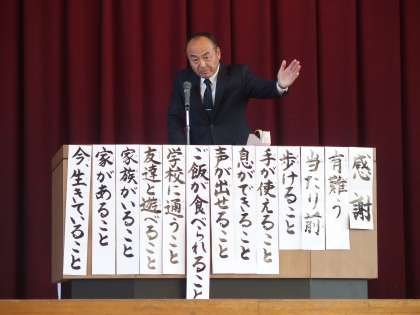 感謝
有難う
当たり前
歩けること
手が使えること
息ができること
声が出せること
ご飯が食べられること
学校に通うこと
友達と遊べること
家族がいること
家があること
今、生きていること